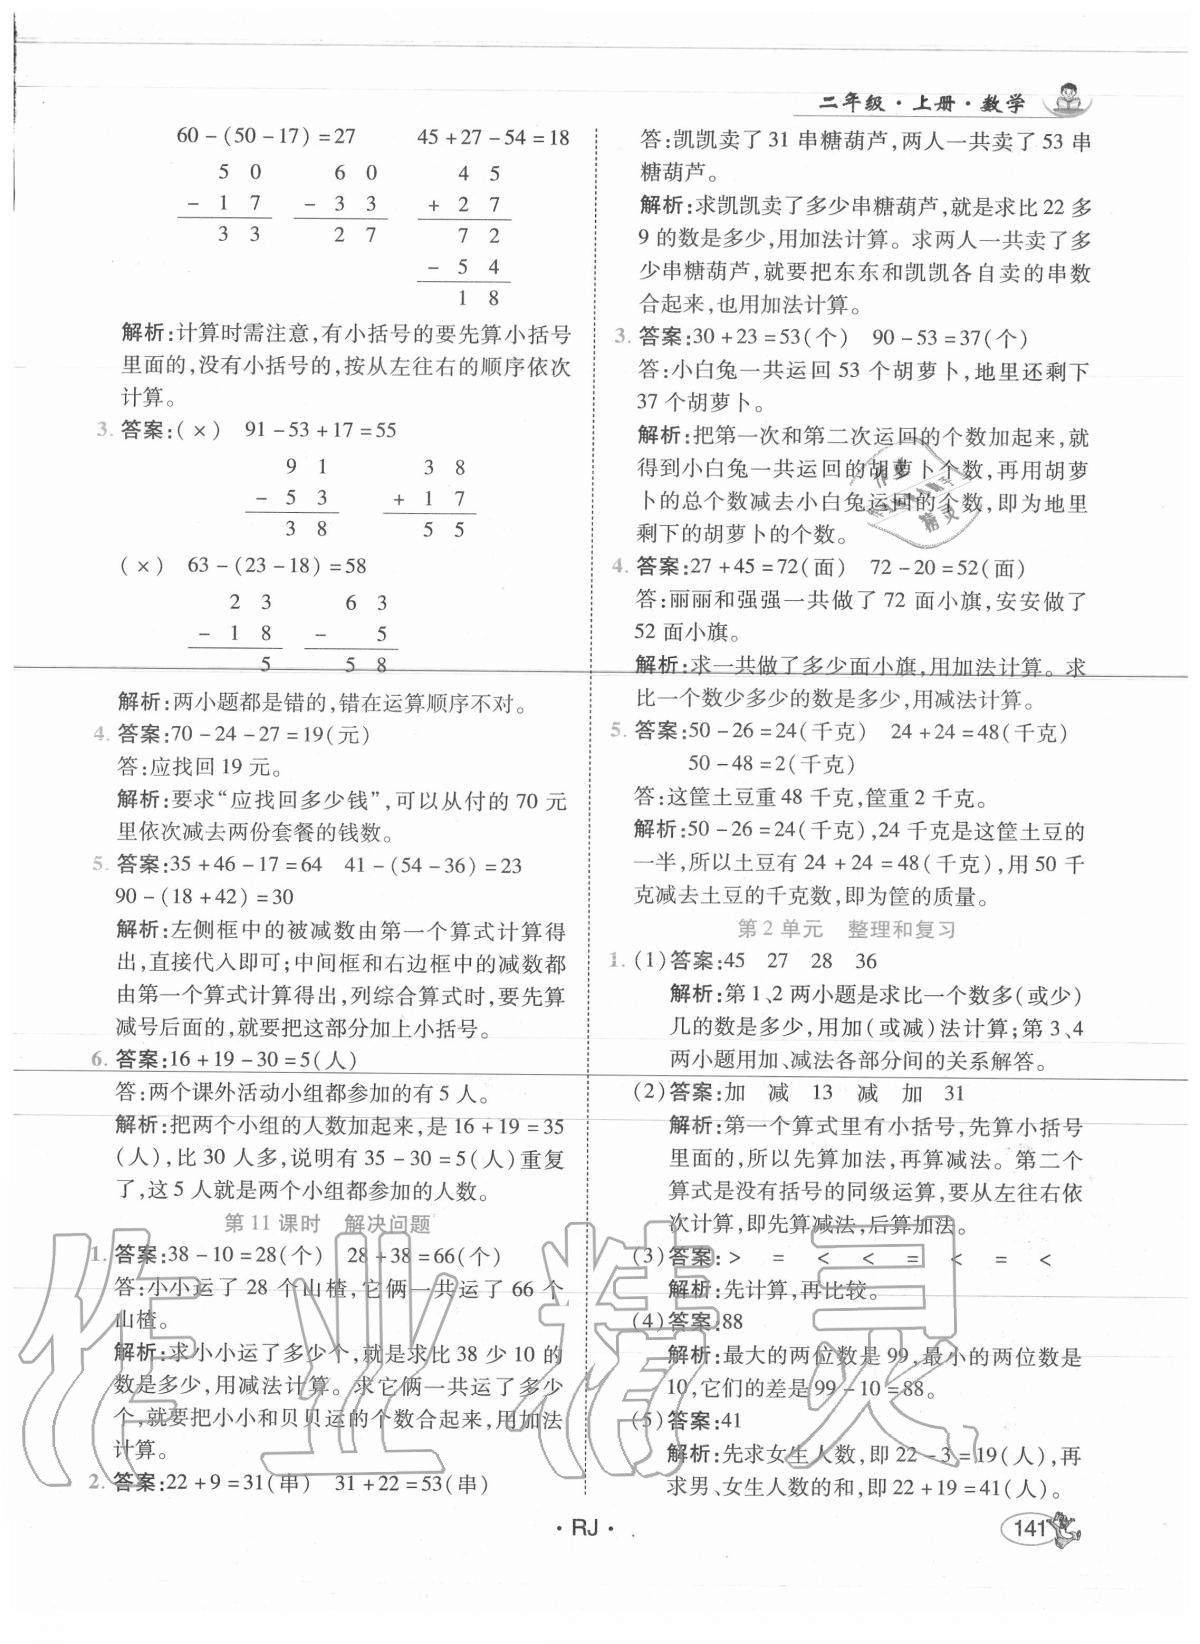 二年级·上册·数学
60-(50-17)=27 45+27-54=18
5 0 6 0 4 5
- 1 7 - 3 3 + 2 7
3 3 2 7 7 2
- 5 4
1 8
解析:计算时需注意,有小括号的要先算小括号
里面的,没有小括号的,按从左往右的顺序依次
计算。
3. 答案:(×) 91-53+17=55
9 1 3 8
- 5 3 + 1 7
3 8 5 5
(×) 63-(23-18)=58
2 3 6 3
- 1 8 - 5
5 5 8
解析:两小题都是错的,错在运算顺序不对。
4. 答案:70-24-27=19(元)
答:应找回19元。
解析:要求“应找回多少钱”,可以从付的70元
里依次减去两份套餐的钱数。
5. 答案:35+46-17=64 41-(54-36)=23
90-(18+42)=30
解析:左侧框中的被减数由第一个算式计算得
出,直接代入即可;中间框和右边框中的减数都
由第一个算式计算得出,列综合算式时,要先算
减号后面的,就要把这部分加上小括号。
6. 答案:16+19-30=5(人)
答:两个课外活动小组都参加的有5人。
解析:把两个小组的人数加起来,是16+19=35
(人),比30人多,说明有35-30=5(人)重复
了,这5人就是两个小组都参加的人数。
第11课时 解决问题
1. 答案:38-10=28(个) 28+38=66(个)
答:小小运了28个山楂,它俩一共运了66个
山楂。
解析:求小小运了多少个,就是求比38少10的
数是多少,用减法计算。求它俩一共运了多少
个,就要把小小和贝贝运的个数合起来,用加法
计算。
2. 答案:22+9=31(串) 31+22=53(串)
答:凯凯卖了31串糖葫芦,两人一共卖了53串
糖葫芦。
解析:求凯凯卖了多少串糖葫芦,就是求比22多
9的数是多少,用加法计算。求两人一共卖了多
少串糖葫芦,就要把东东和凯凯各自卖的串数
合起来,也用加法计算。
3. 答案:30+23=53(个) 90-53=37(个)
答:小白兔一共运回53个胡萝卜,地里还剩下
37个胡萝卜。
解析:把第一次和第二次运回的个数加起来,就
得到小白兔一共运回的胡萝卜个数,再用胡萝
卜的总个数减去小白兔运回的个数,即为地里
剩下的胡萝卜的个数。
4. 答案:27+45=72(面) 72-20=52(面)
答:丽丽和强强一共做了72面小旗,安安做了
52面小旗。
解析:求一共做了多少面小旗,用加法计算。求
比一个数少多少的数是多少,用减法计算。
5. 答案:50-26=24(千克) 24+24=48(千克)
50-48=2(千克)
答:这筐土豆重48千克,筐重2千克。
解析:50-26=24(千克),24千克是这筐土豆的
一半,所以土豆有24+24=48(千克),用50千
克减去土豆的千克数,即为筐的质量。
第2单元 整理和复习
1. (1)答案:45 27 28 36
解析:第1、2两小题是求比一个数多(或少)
几的数是多少,用加(或减)法计算;第3、4
两小题用加、减法各部分间的关系解答。
(2)答案:加 减 13 减 加 31
解析:第一个算式里有小括号,先算小括号
里面的,所以先算加法,再算减法。第二个
算式是没有括号的同级运算,要从左往右依
次计算,即先算减法,后算加法。
(3)答案:> = < < = < = <
解析:先计算,再比较。
(4)答案:88
解析:最大的两位数是99,最小的两位数是
10,它们的差是99-10=88。
(5)答案:41
解析:先求女生人数,即22-3=19(人),再
求男、女生人数的和,即22+19=41(人)。
·RJ·
141
作业精灵